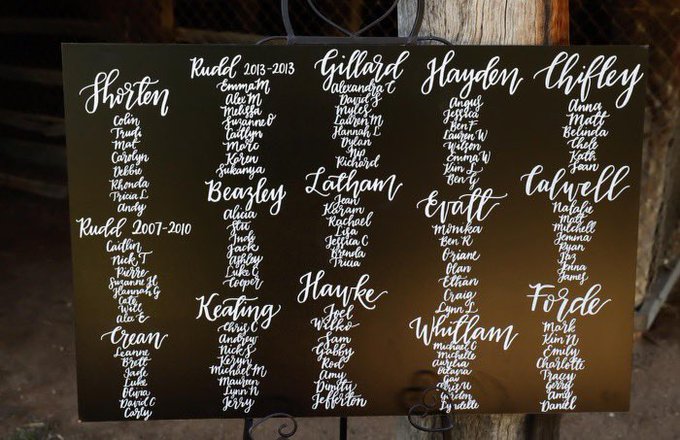 Shorten
Colin
Trudi
Mat
Carolyn
Debbie
Rhonda
Tricia L
Andy
Rudd 2007-2010
Caitlin
Nick T
Pierre
Suzanne H
Hannah G
Cate
Will
Ala E
Crean
Leanne
Brett
Jade
Luke
Olivia
David C
Carly
Rudd 2013-2013
Emma M
Alex M
Melissa
Suzanne O
Caitlyn
Marc
Karen
Sukanya
Beazley
Alicia
Stu
Jade
Jack
Ashley
Luke C
Cooper
Keating
Chris C
Andrew
Nick S
Keryn
Michael M
Maureen
Lynn N
Jerry
Gillard
Alexandra C
David S
Myles
Lauren M
Hannah L
Dylan
Nip
Richard
Latham
Jean
Karam
Rachael
Lisa
Jessica C
Brenda
Tricia
Hawke
Joel
Wilko
Sam
Gabby
Rod
Amy
Dimity
Jefferton
Hayden
Angus
Jessica
Ben F
Lauren W
Wilson
Emma W
Kim L
Ben G
Evatt
Monika
Ben R
Oriane
Olan
Ethan
Craig
Lynn L
Whitlam
Michael C
Michelle
Aurelia
Gordon
Lyndelle
Chifley
Anna
Matt
Belinda
Chole
Kath
Sean
Calwell
Natalie
Matt
Mitchell
Jemma
Ryan
Taz
Jenna
James
Forde
Mark
Kim N
Emily
Charlotte
Tracy
Gerry
Amy
Daniel